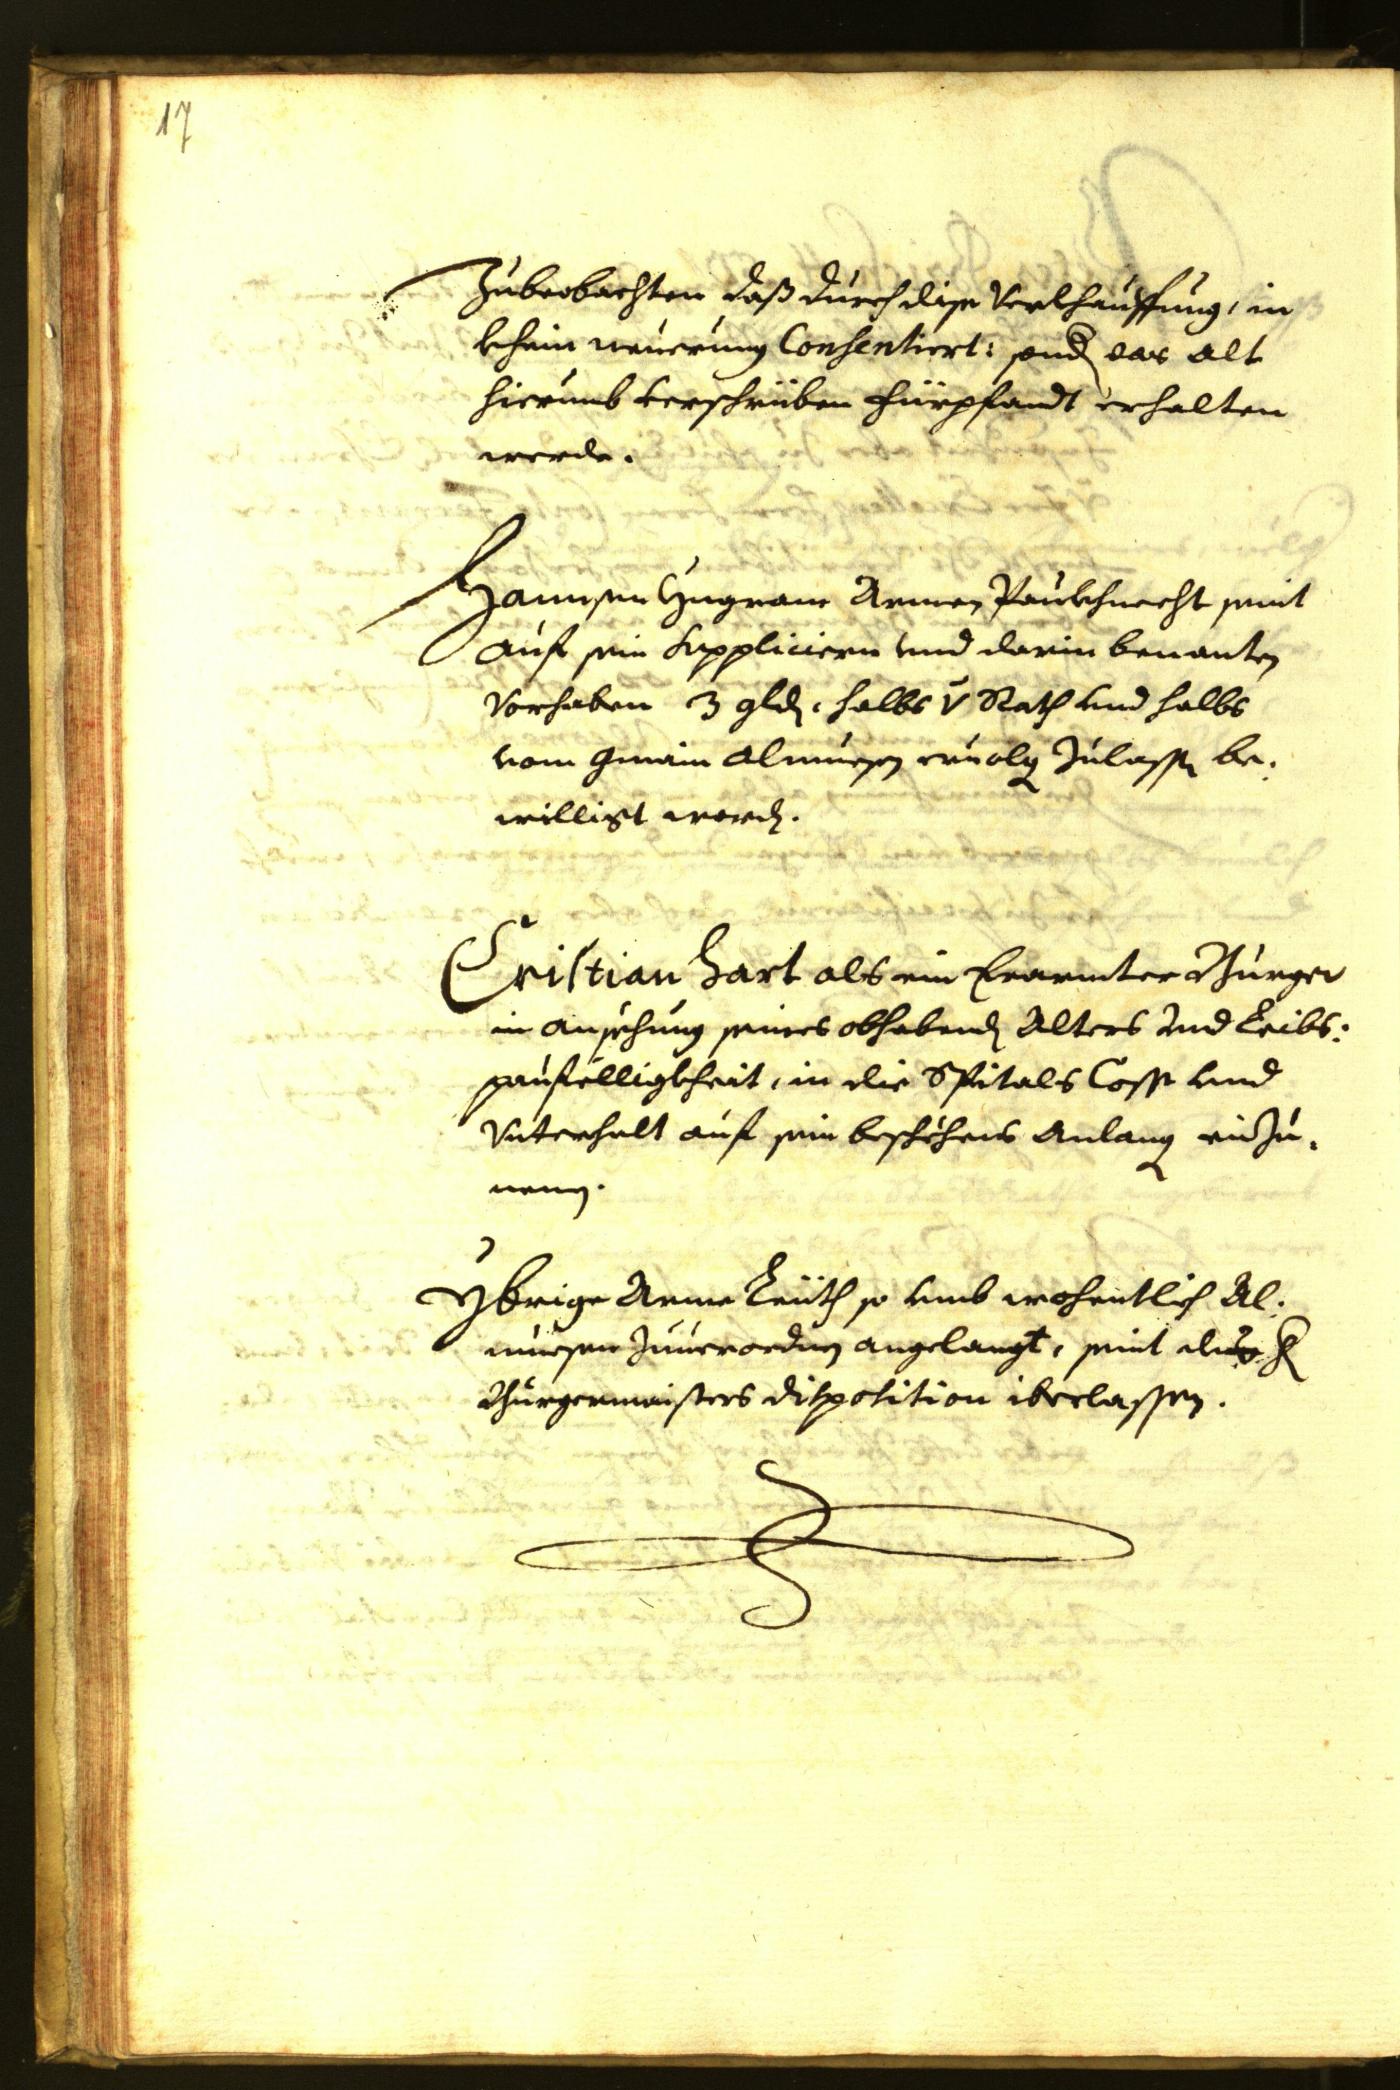 17
Zubeobachten daß durch dise Verkhauffung, in
khein neuerung Consentiert: sond das alt
hierumb verschriben fürpfandt erhalten
werde.
Hannsen Ungram Armen Paukhnecht seint
auf sein Suppliciern und darin benanten
Vorhaben 3 gld. halbs v Rath und halbs
vom gmain almuesen ervolg Zulassn be:
willigt word.
Cristian Hart als ein Erarmter Burger
in ansehung seines obhabend Alters und Leibs:
paufelligkheit, in die Spitals Cosst und
Unterhalt auf sein beschehens Anlang einzu:
nemen.
Ybrige Arme Leüth so umb wohentlich Al:
muesen zuverordnen angelangt, seint des H
Burgermaisters disposition iberlassen.